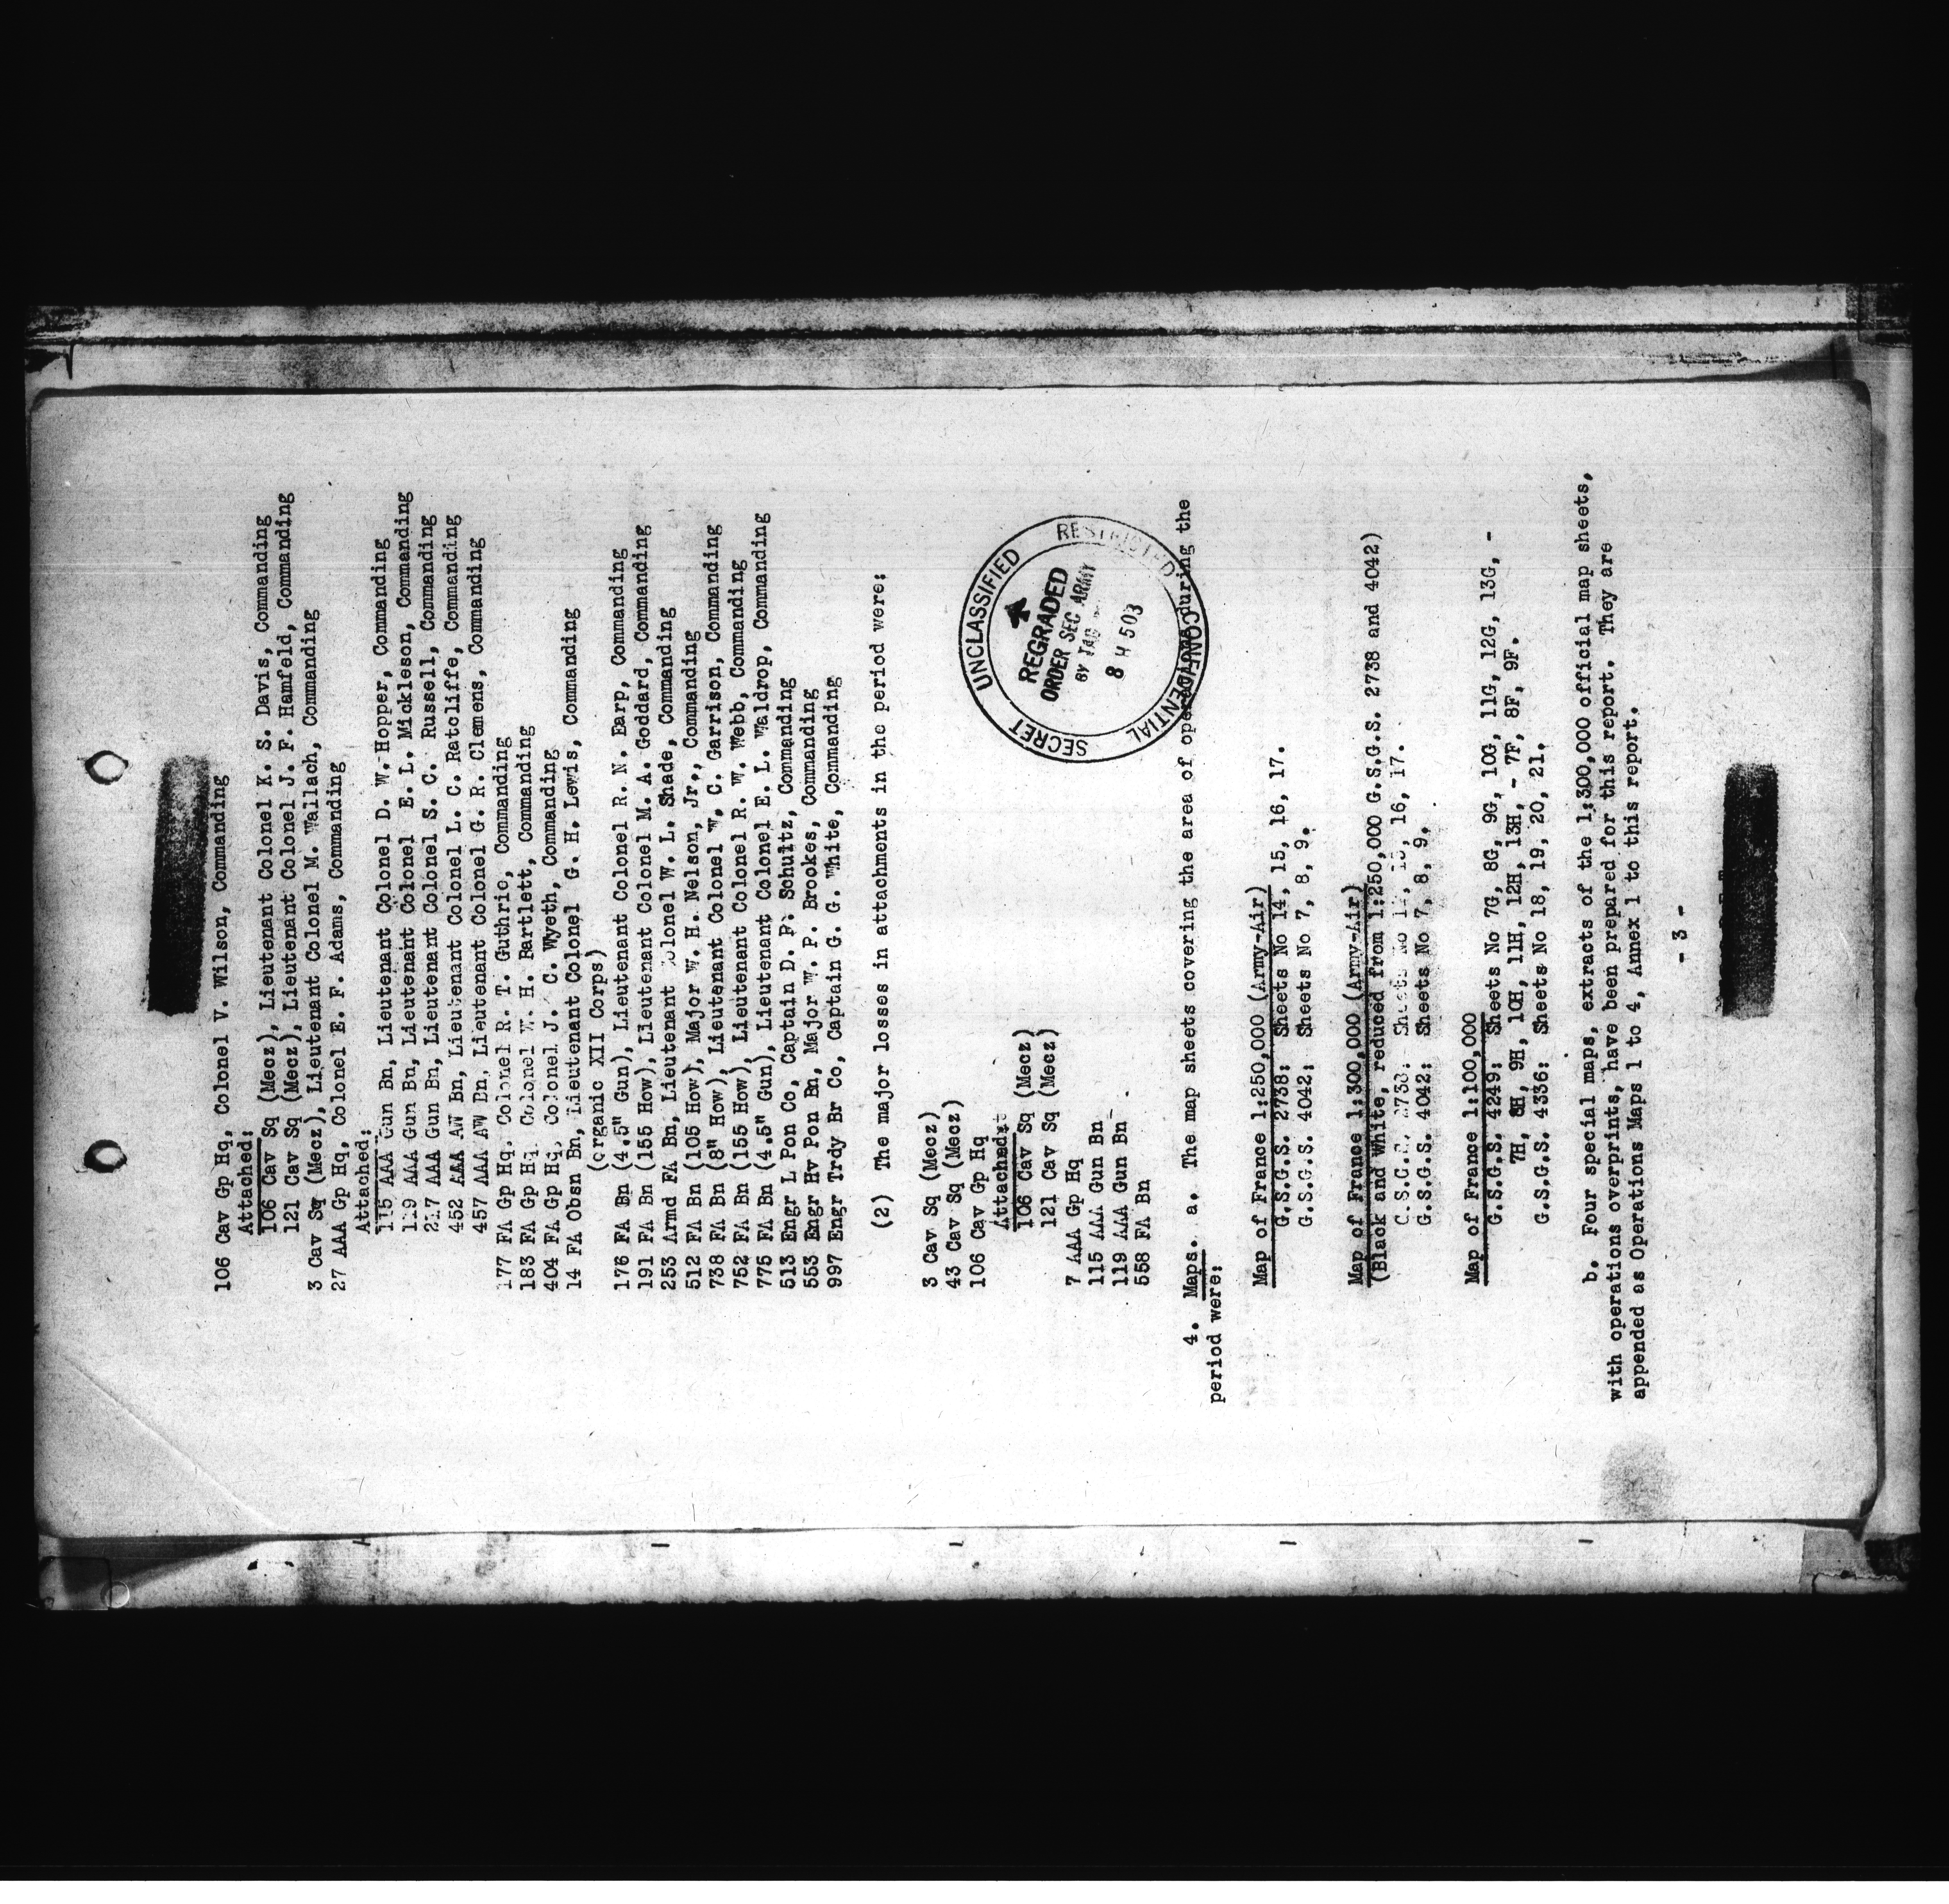 106 Cav Gp Hq, Colonel V. Wilson, Commanding
Attached:
106 Cav Sq (Mecz), Lieutenant Colonel K. S. Davis, Commanding
121 Cav Sq (Mecz), Lieutenant Colonel J. F. Hamfeld, Commanding
3 Cav Sq (Mecz), Lieutenant Colonel M. Wallach, Commanding
27 AAA Gp Hq, Colonel E. F. Adams, Commanding
Attached:
115 AAA Gun Bn, Lieutenant Colonel D. W. Hopper, Commanding
119 AAA Gun Bn, Lieutenant Colonel E. L. Mickleson, Commanding
217 AAA Gun Bn, Lieutenant Colonel S. C. Russell, Commanding
452 AAA AW Bn, Lieutenant Colonel L. C. Ratcliffe, Commanding
457 AAA AW Bn, Lieutenant Colonel G. R. Clemens, Commanding
177 FA Gp Hq, Colonel R. T. Guthrie, Commanding
183 FA Gp Hq, Colonel W. H. Bartlett, Commanding
404 FA Gp Hq, Colonel J. C. Wyeth, Commanding
14 FA Obsn Bn, Lieutenant Colonel G. H. Lewis, Commanding
(organic XII Corps)
176 FA Bn (4.5" Gun), Lieutenant Colonel R. N. Earp, Commanding
191 FA Bn (155 How), Lieutenant Colonel M. A. Goddard, Commanding
253 Armd FA Bn, Lieutenant Colonel W. L. Shade, Commanding
512 FA Bn (105 How), Major W. H. Nelson, Jr., Commanding
738 FA Bn (8" How), Lieutenant Colonel W. C. Garrison, Commanding
752 FA Bn (155 How), Lieutenant Colonel R. W. Webb, Commanding
775 FA Bn (4.5" Gun), Lieutenant Colonel E. L. Waldrop, Commanding
513 Engr L Pon Co, Captain D. P. Schultz, Commanding
553 Engr Hv Pon Bn, Major W. P. Brookes, Commanding
997 Engr Trdy Br Co, Captain G. G. White, Commanding
(2) The major losses in attachments in the period were:
3 Cav Sq (Mecz)
43 Cav Sq (Mecz)
106 Cav Gp Hq
Attached:
106 Cav Sq (Mecz)
121 Cav Sq (Mecz)
7 AAA Gp Hq
115 AAA Gun Bn
119 AAA Gun Bn
558 FA Bn
UNCLASSIFIED
RESTRICTED
CONFIDENTIAL
SECRET
REGRADED
ORDER SEC ARMY
BY TAG
8 H 503
4. Maps. a. The map sheets covering the area of operations during the
period were:
Map of France 1:250,000 (Army-Air)
G.S.G.S. 2738: Sheets No 14, 15, 16, 17.
G.S.G.S. 4042; Sheets No 7, 8, 9.
Map of France 1:300,000 (Army-Air)
(Black and White, reduced from 1:250,000 G.S.G.S. 2738 and 4042)
G.S.G.S. 2738: Sheets No 14, 15, 16, 17.
G.S.G.S. 4042: Sheets No 7, 8, 9.
Map of France 1:100,000
G.S.G.S. 4249: Sheets No 7G, 8G, 9G, 10G, 11G, 12G, 13G, -
7H, 8H, 9H, 10H, 11H, 12H, 13H, - 7F, 8F, 9F.
G.S.G.S. 4336: Sheets No 18, 19, 20, 21.
b. Four special maps, extracts of the 1:300,000 official map sheets,
with operations overprints, have been prepared for this report. They are
appended as Operations Maps 1 to 4, Annex 1 to this report.
- 3 -